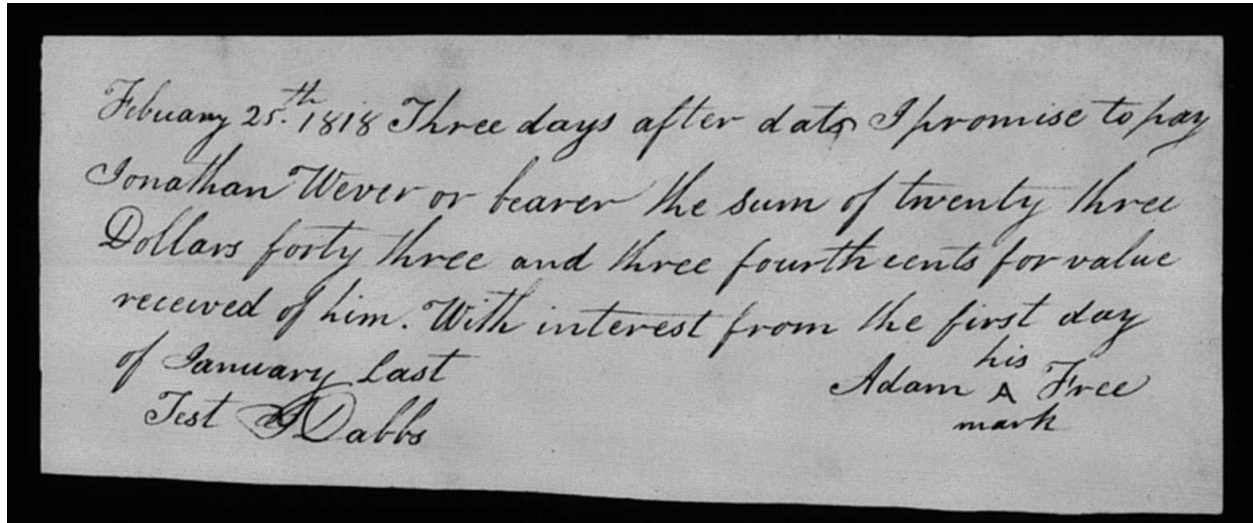 Febuary 25.th 1818 Three days after date I promise to pay
Jonathan Wever or bearer the sum of twenty three
Dollars forty three and three fourth cents for value
received of him. With interest from the first day
of January last
his
Adam A Free
mark
Test J Dabbs